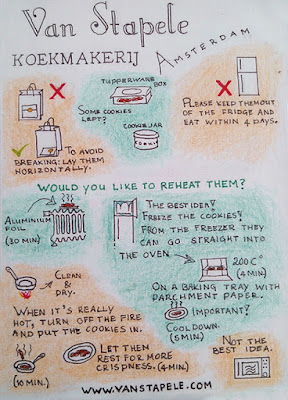 Van Stapele
KOEKMAKERIJ AMSTERDAM
TUPPERWARE
BOX
SOME COOKIES
LEFT?
COOKIEJAR
PLEASE KEEP THEM OUT
OF THE FRIDGE AND
EAT WITHIN 4 DAYS.
TO AVOID
BREAKING: LAY THEM
HORIZONTALLY.
WOULD YOU LIKE TO REHEAT THEM?
ALUMINIUM
FOIL
(30 MIN)
THE BEST IDEA?
FREEZE THE COOKIES!
FROM THE FREEZER THEY
CAN GO STRAIGHT INTO
THE OVEN
200°C
(4 MIN)
ON A BAKING TRAY WITH
PARCHMENT PAPER.
CLEAN
&
DRY.
IMPORTANT?
COOL DOWN.
(5 MIN)
WHEN IT'S REALLY
HOT, TURN OFF THE FIRE
AND PUT THE COOKIES IN.
(10 MIN.)
LET THEM
REST FOR MORE
CRISPNESS. (4 MIN)
NOT THE
BEST IDEA.
WWW.VANSTAPELE.COM